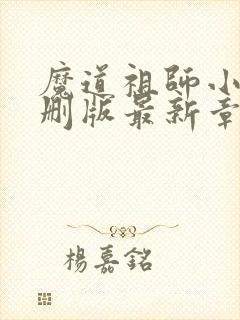 魔道祖師小
刪版最新章
楊嘉銘